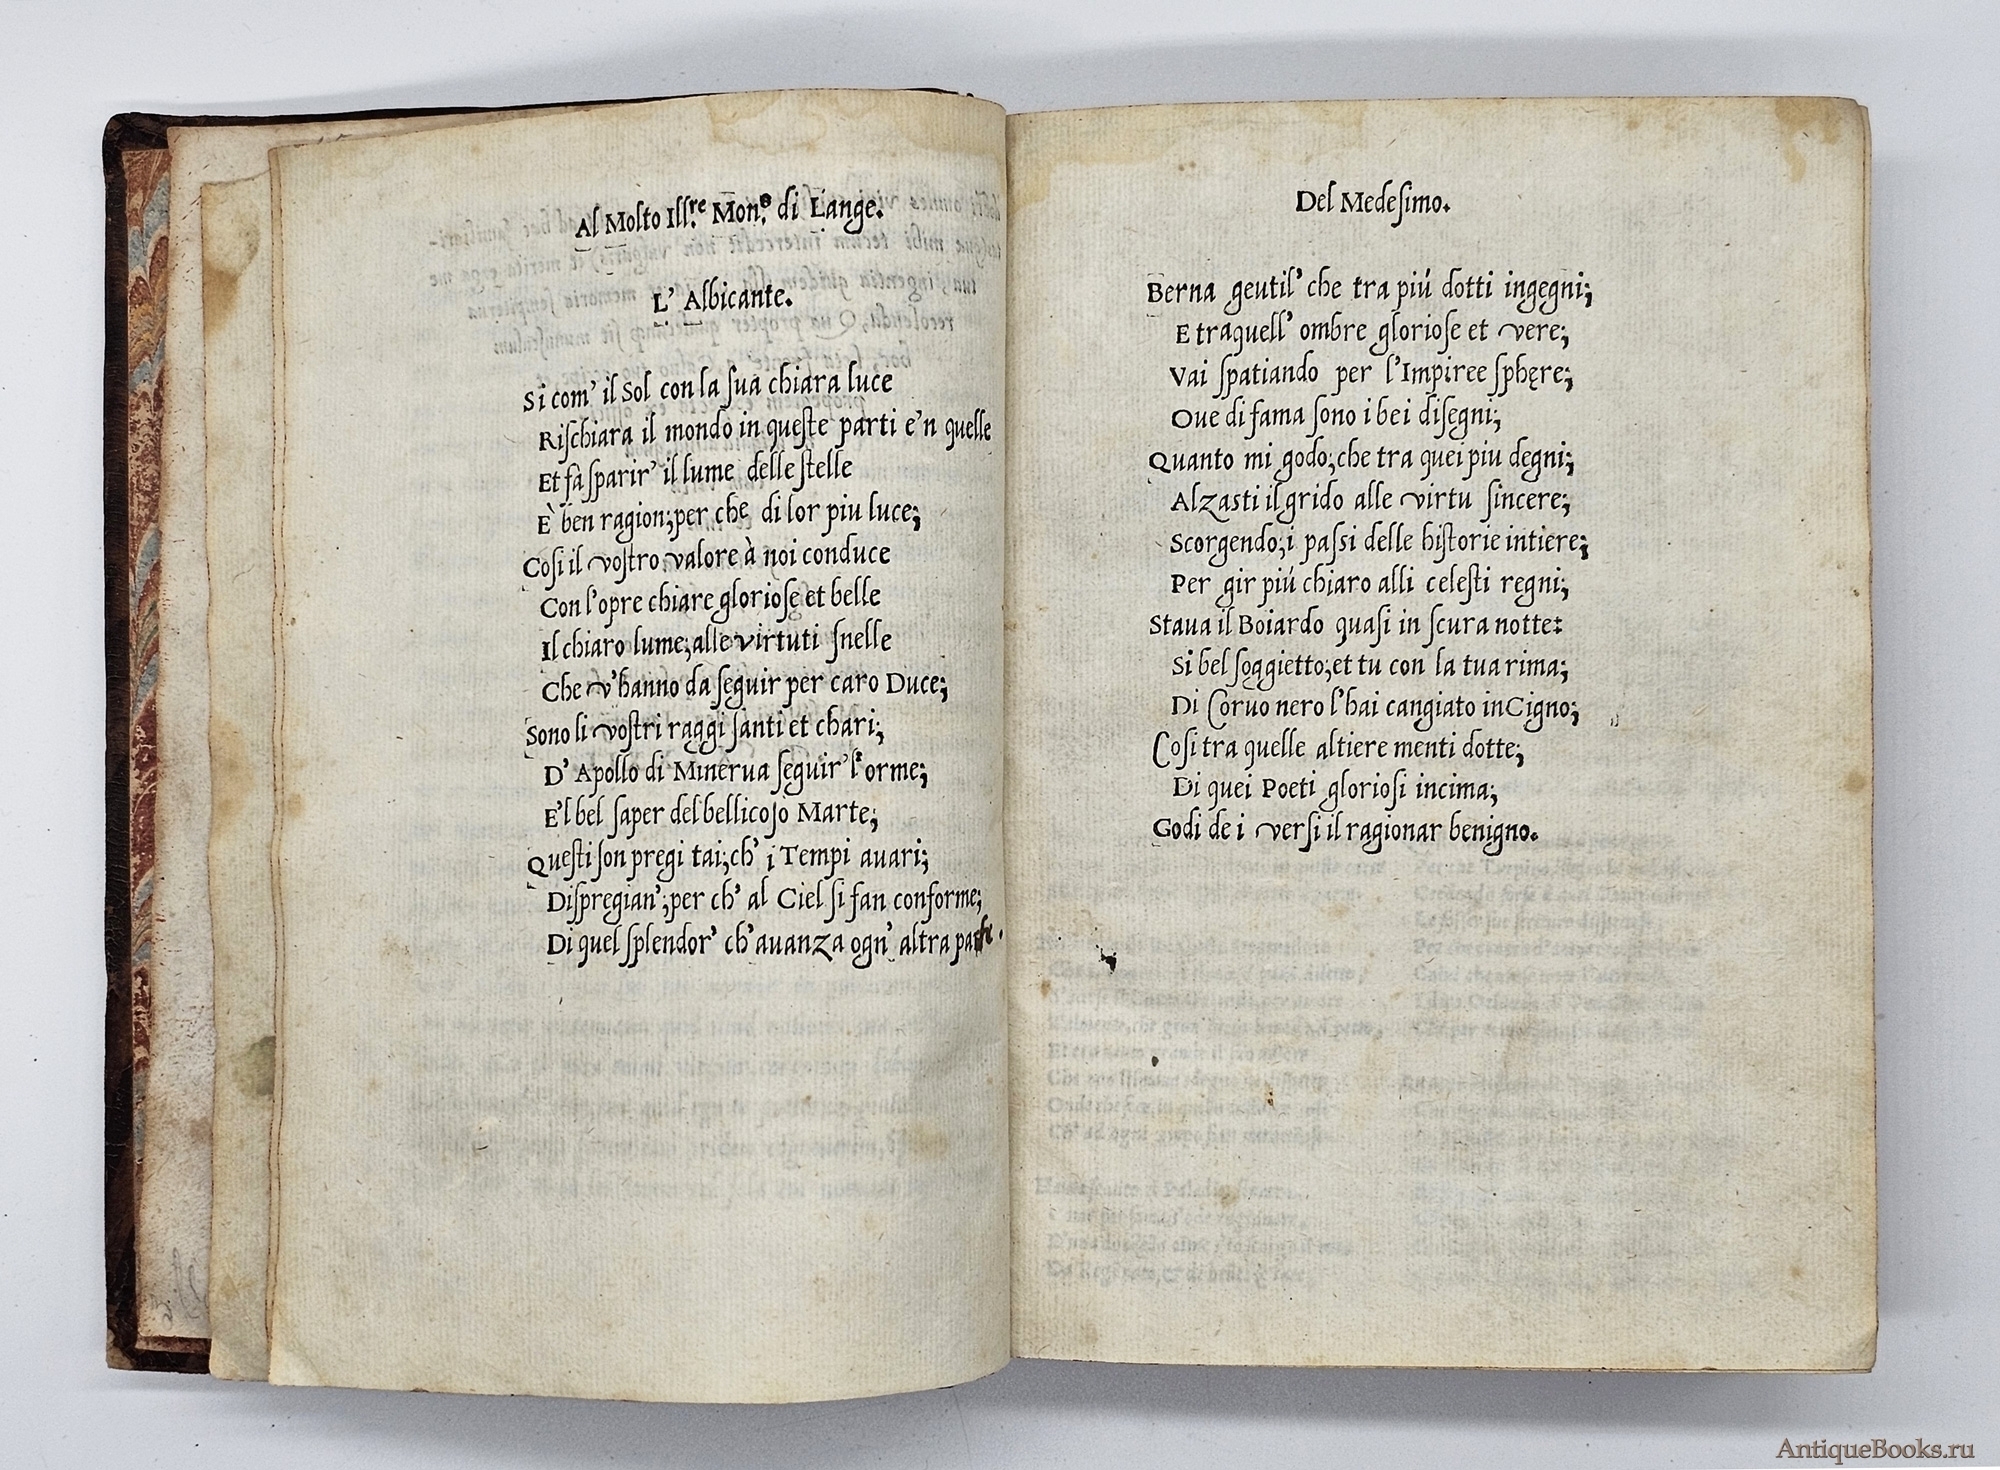 Al Molto Ill.re Mon.e di Lange.
L' Albicante.
Si com' il Sol con la sua chiara luce
Rischiara il mondo in queste parti e'n quelle
Et fà sparir' il lume delle stelle
È ben ragion; per che di lor piu luce;
Cosi il vostro valore à noi conduce
Con l'opre chiare gloriose et belle
Il chiaro lume; alle virtuti snelle
Che v'hanno da seguir per caro Duce;
Sono li vostri raggi santi et chari;
D' Apollo di Minerua seguir' l'orme;
E'l bel saper del bellicoso Marte;
Questi son pregi tai; ch' i Tempi auari;
Dispregian'; per ch' al Ciel si fan conforme;
Di quel splendor' ch' auanza ogn' altra parte.
Del Medesimo.
Berna geutil' che tra piú dotti ingegni;
E tra quell' ombre gloriose et vere;
Vai spatiando per l'Impiree sphęre;
Oue di fama sono i bei disegni;
Quanto mi godo; che tra quei piu degni;
Alzasti il grido alle virtu sincere;
Scorgendo; i passi delle historie intiere;
Per gir piú chiaro alli celesti regni;
Staua il Boiardo quasi in scura notte:
Si bel soggietto; et tu con la tua rima;
Di Coruo nero l'hai cangiato in Cigno;
Cosi tra quelle altiere menti dotte;
Di quei Poeti gloriosi in cima;
Godi de i versi il ragionar benigno.
AntiqueBooks.ru